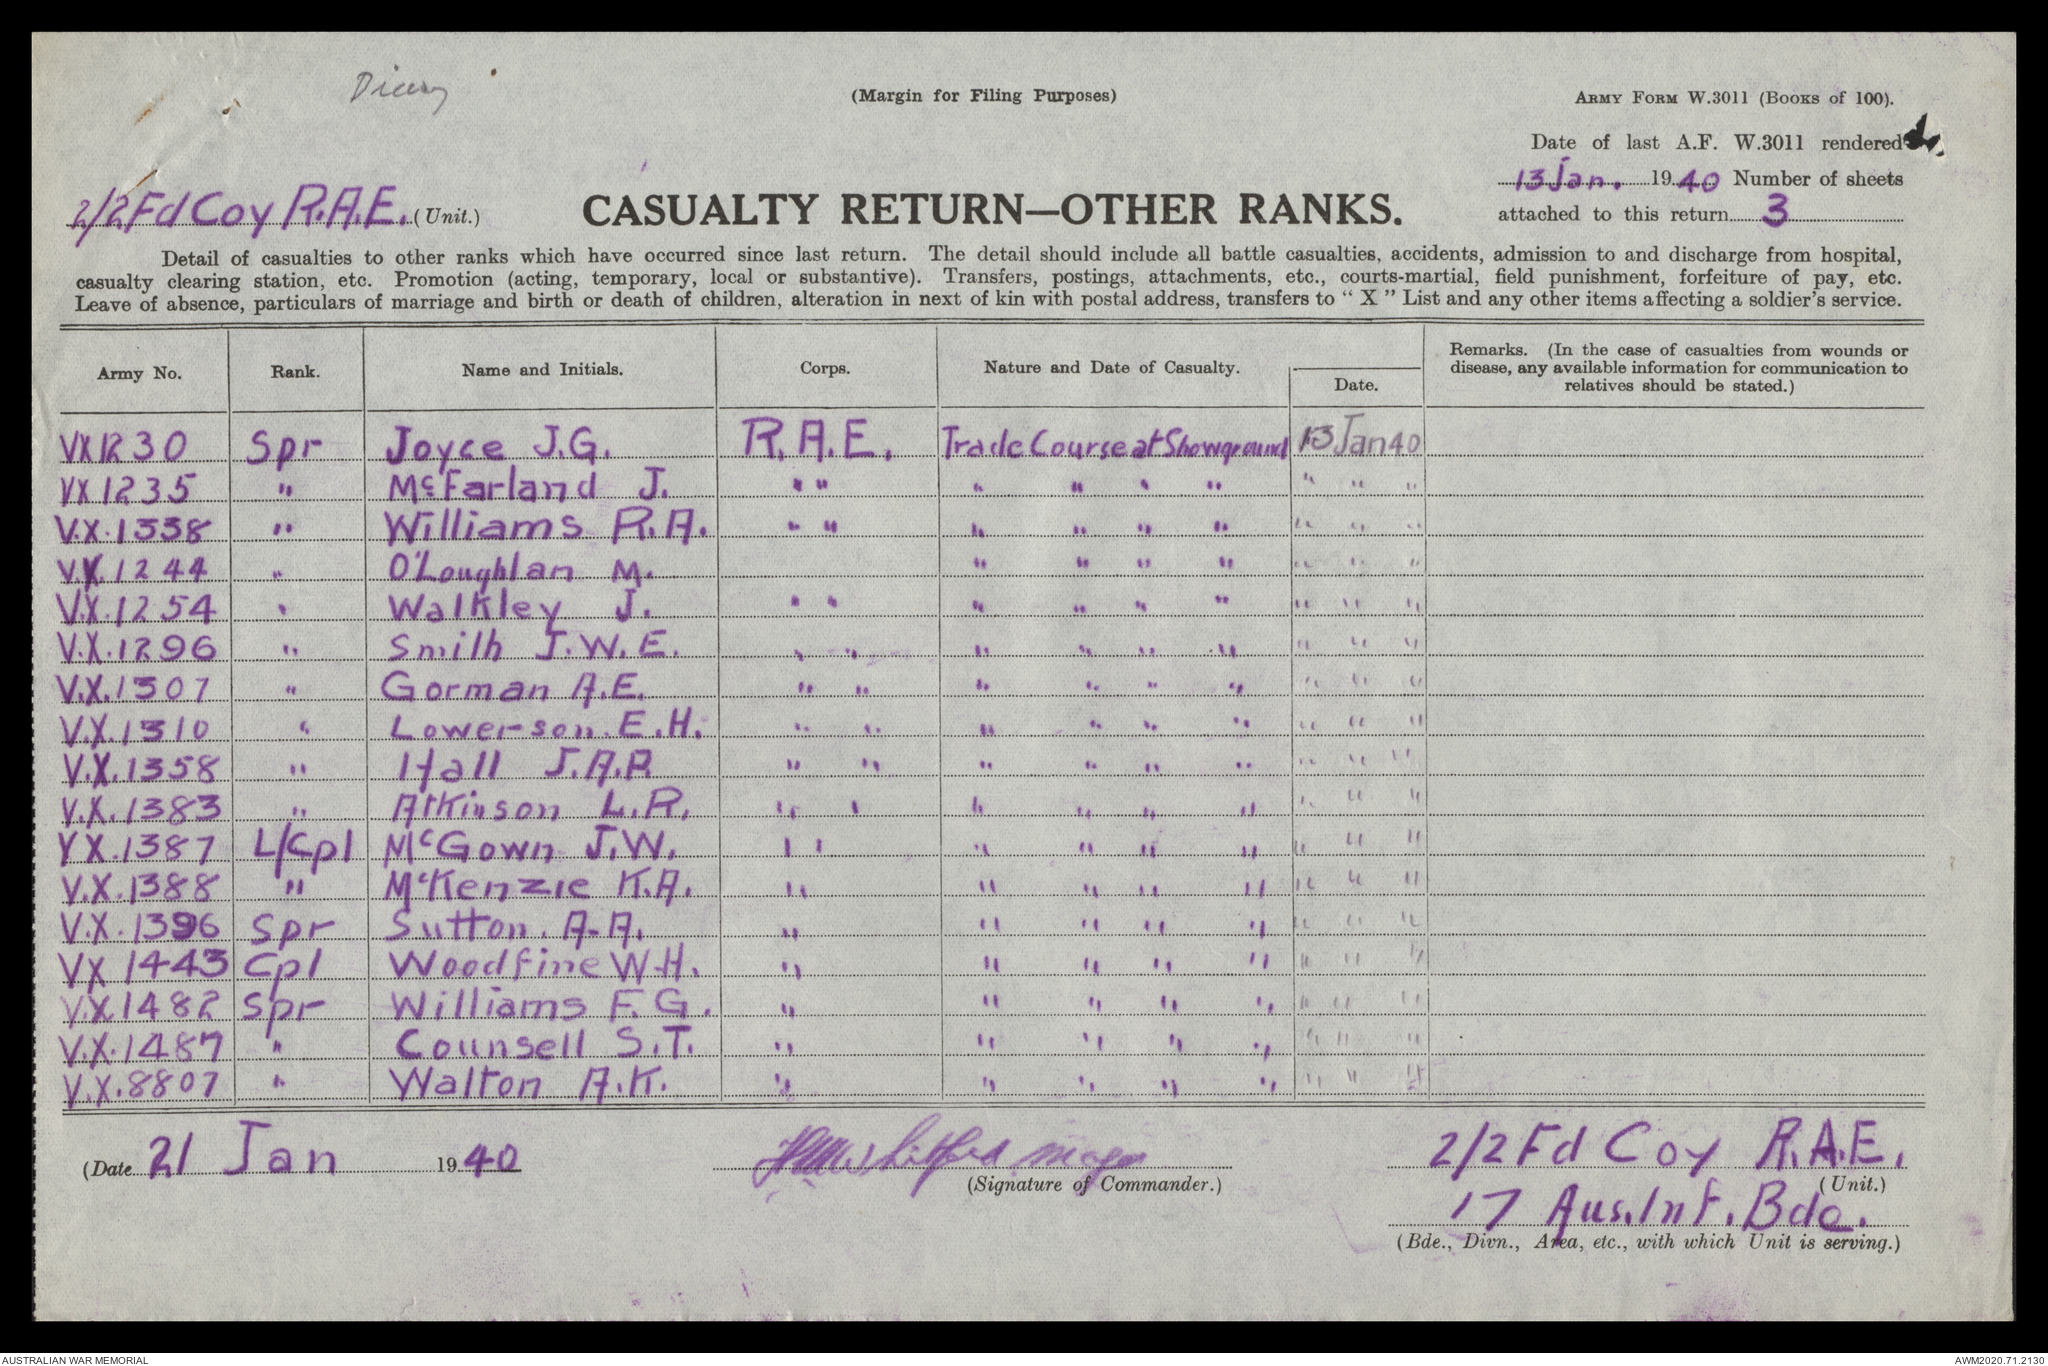 Diary
(Margin for Filing Purposes)
ARMY FORM W.3011 (BOOKS of 100).
Date of last A.F. W.3011 rendered
13 Jan. 1940 Number of sheets
attached to this return 3
2/2 Fd Coy R.A.E. (Unit.)
CASUALTY RETURN—OTHER RANKS.
Detail of casualties to other ranks which have occurred since last return. The detail should include all battle casualties, accidents, admission to and discharge from hospital,
casualty clearing station, etc. Promotion (acting, temporary, local or substantive). Transfers, postings, attachments, etc., courts-martial, field punishment, forfeiture of pay, etc.
Leave of absence, particulars of marriage and birth or death of children, alteration in next of kin with postal address, transfers to " X " List and any other items affecting a soldier's service.
Army No. Rank. Name and Initials. Corps. Nature and Date of Casualty. Date. Remarks. (In the case of casualties from wounds or
disease, any available information for communication to
relatives should be stated.)
VX1230 Spr Joyce J.G. R.A.E. Trade Course at Showground 13 Jan 40
VX1235 " McFarland J. " " " " " " " " "
V.X.1338 " Williams R.A. " " " " " " " " "
V.X.1244 " O'Loughlan M. " " " " " " "
V.X.1254 " Walkley J. " " " " " " " " "
V.X.1296 " Smith J.W.E. " " " " " " " " "
V.X.1307 " Gorman A.E. " " " " " " " " "
V.X.1310 " Lowerson E.H. " " " " " " " " "
V.X.1358 " Hall J.A.R. " " " " " " " " "
V.X.1383 " Atkinson L.R. " " " " " " " " "
VX.1387 L/Cpl McGown J.W. " " " " " " " " "
V.X.1388 " McKenzie K.A. " " " " " " " "
V.X.1396 Spr Sutton A.A. " " " " " " " "
VX 1443 Cpl Woodfine W.H. " " " " " " " "
V.X.1482 Spr Williams F.G. " " " " " " " "
V.X.1487 " Counsell S.T. " " " " " " " "
V.X.8807 " Walton A.K. " " " " " " " "
(Date 21 Jan 1940
Major
(Signature of Commander.)
2/2 Fd Coy R.A.E.
(Unit.)
17 Aus. Inf. Bde.
(Bde., Divn., Area, etc., with which Unit is serving.)
AUSTRALIAN WAR MEMORIAL
AWM2020.71.2130